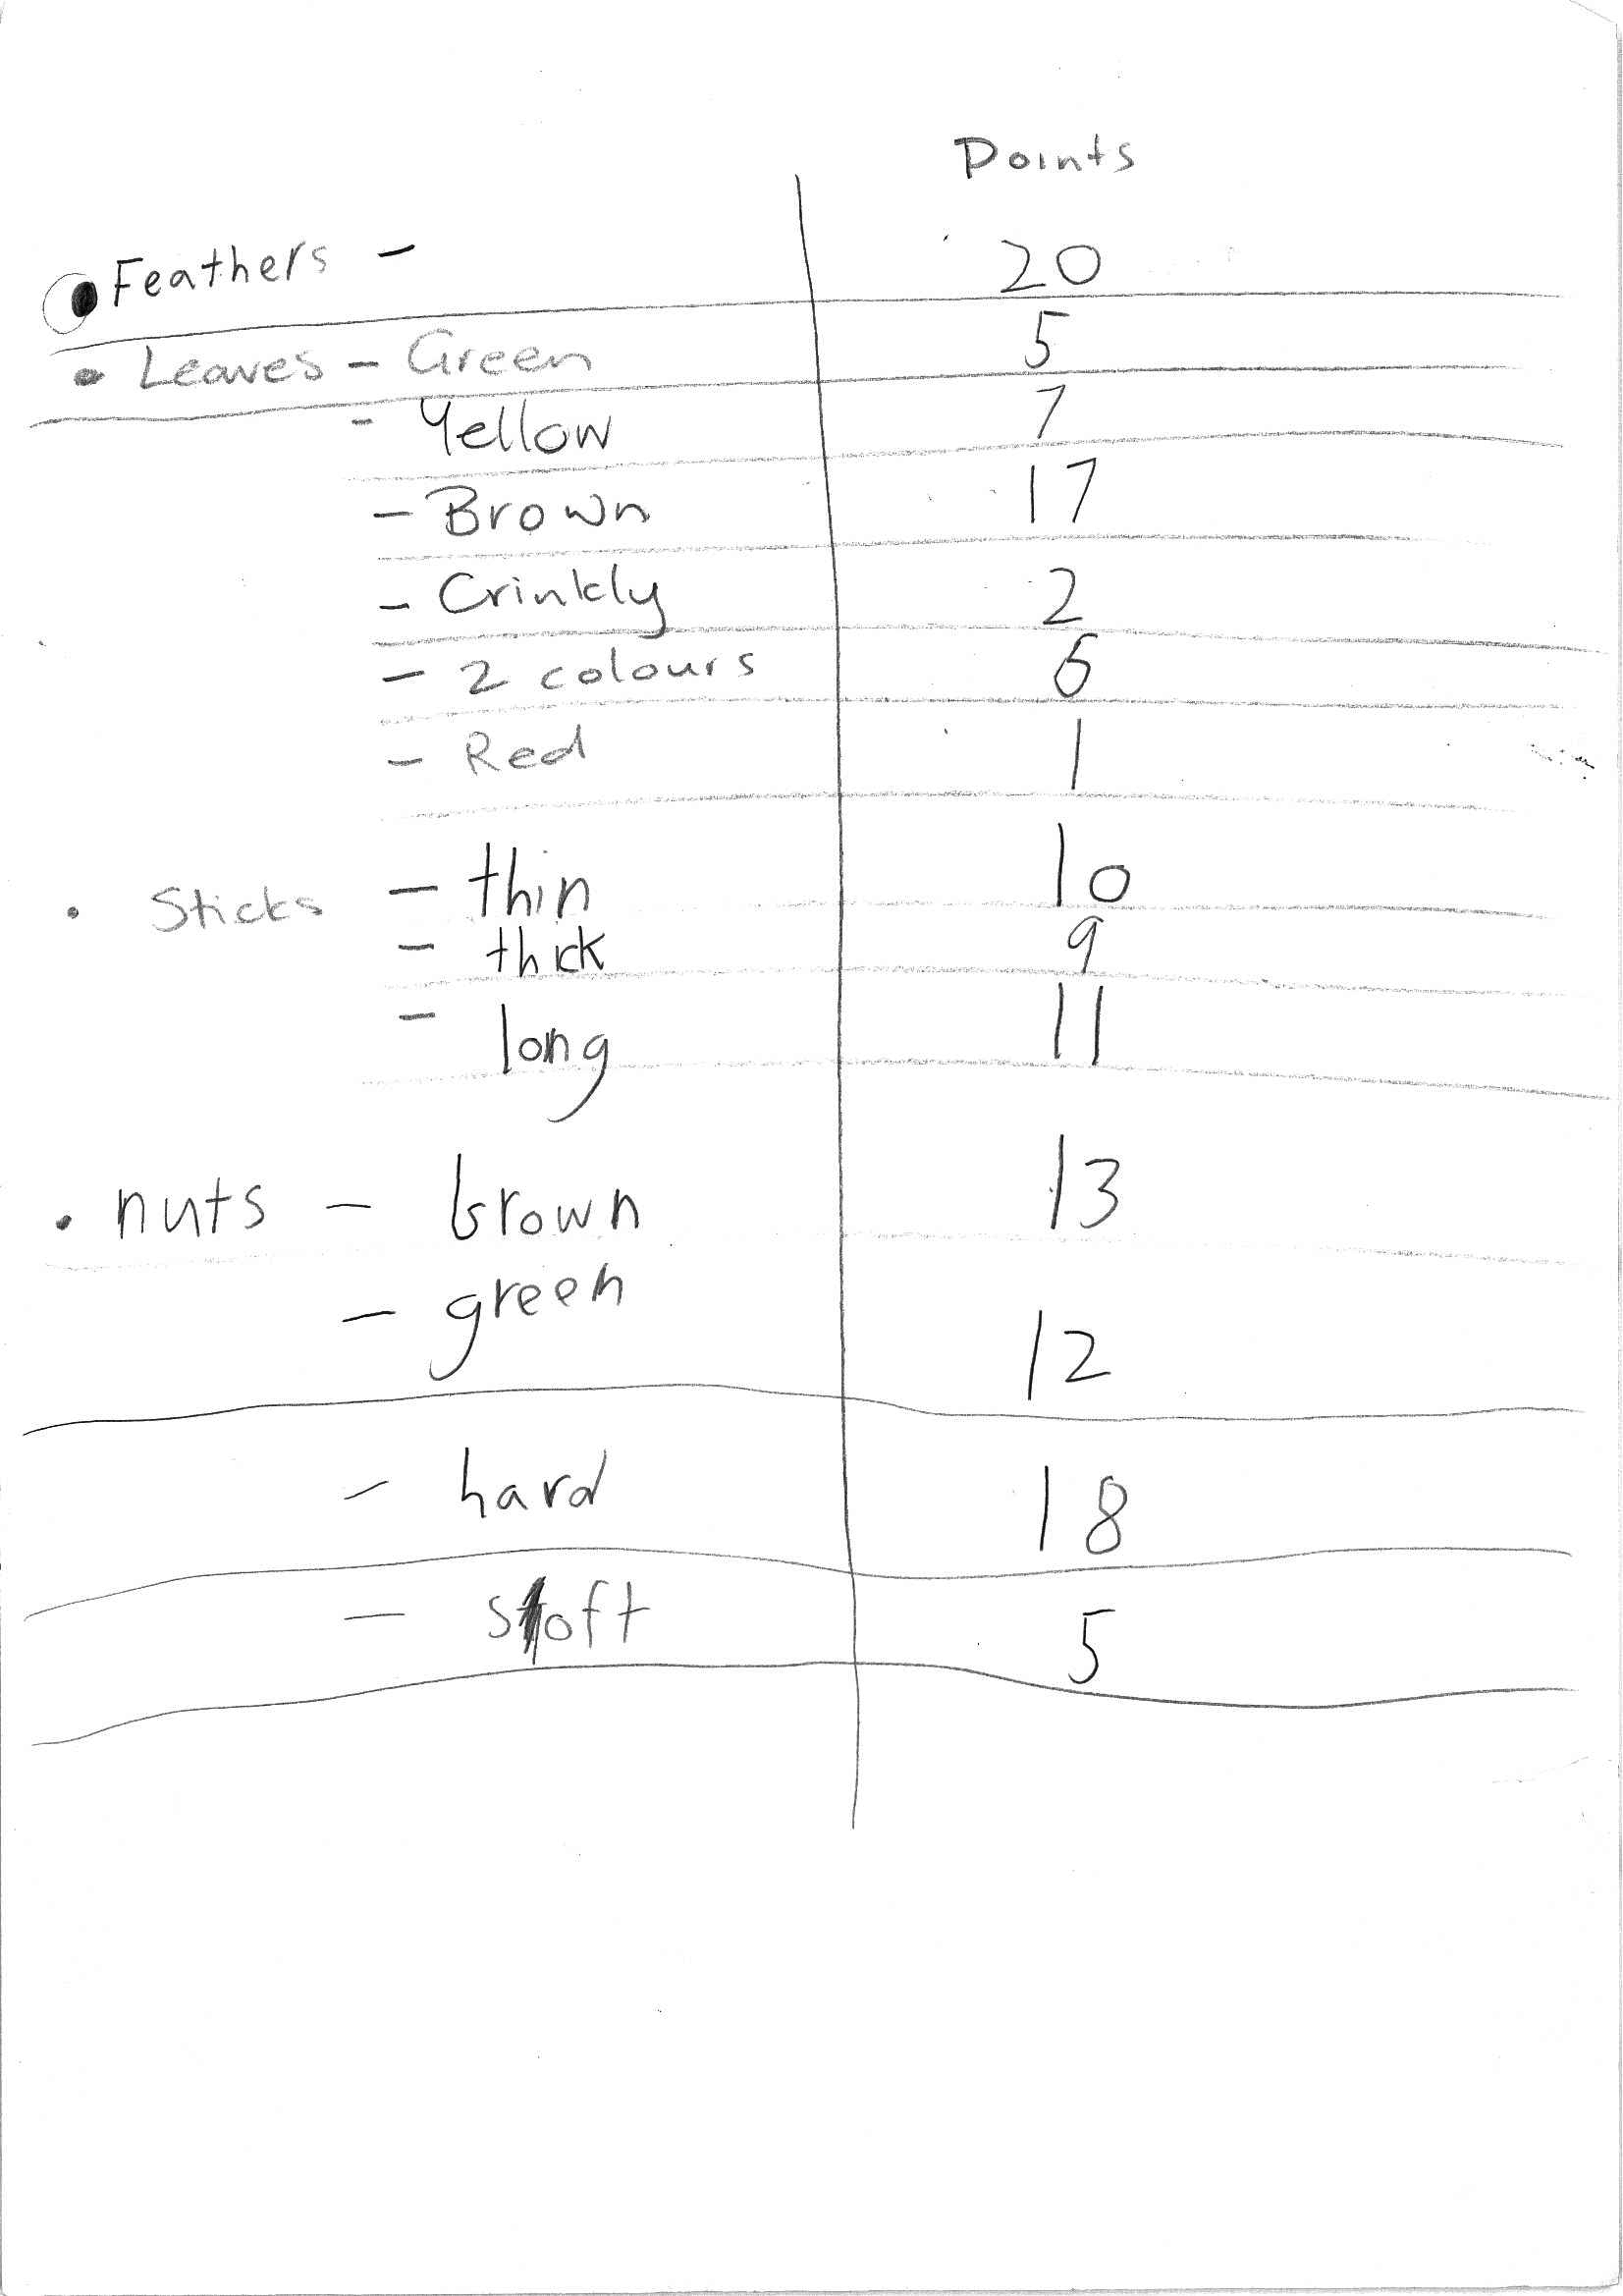 Points
• Feathers - 20
• Leaves - Green 5
- Yellow 7
- Brown 17
- Crinkly 2
- 2 colours 6
- Red 1
• Sticks - thin 10
- thick 9
- long 11
• nuts - brown 13
- green 12
- hard 18
- soft 5